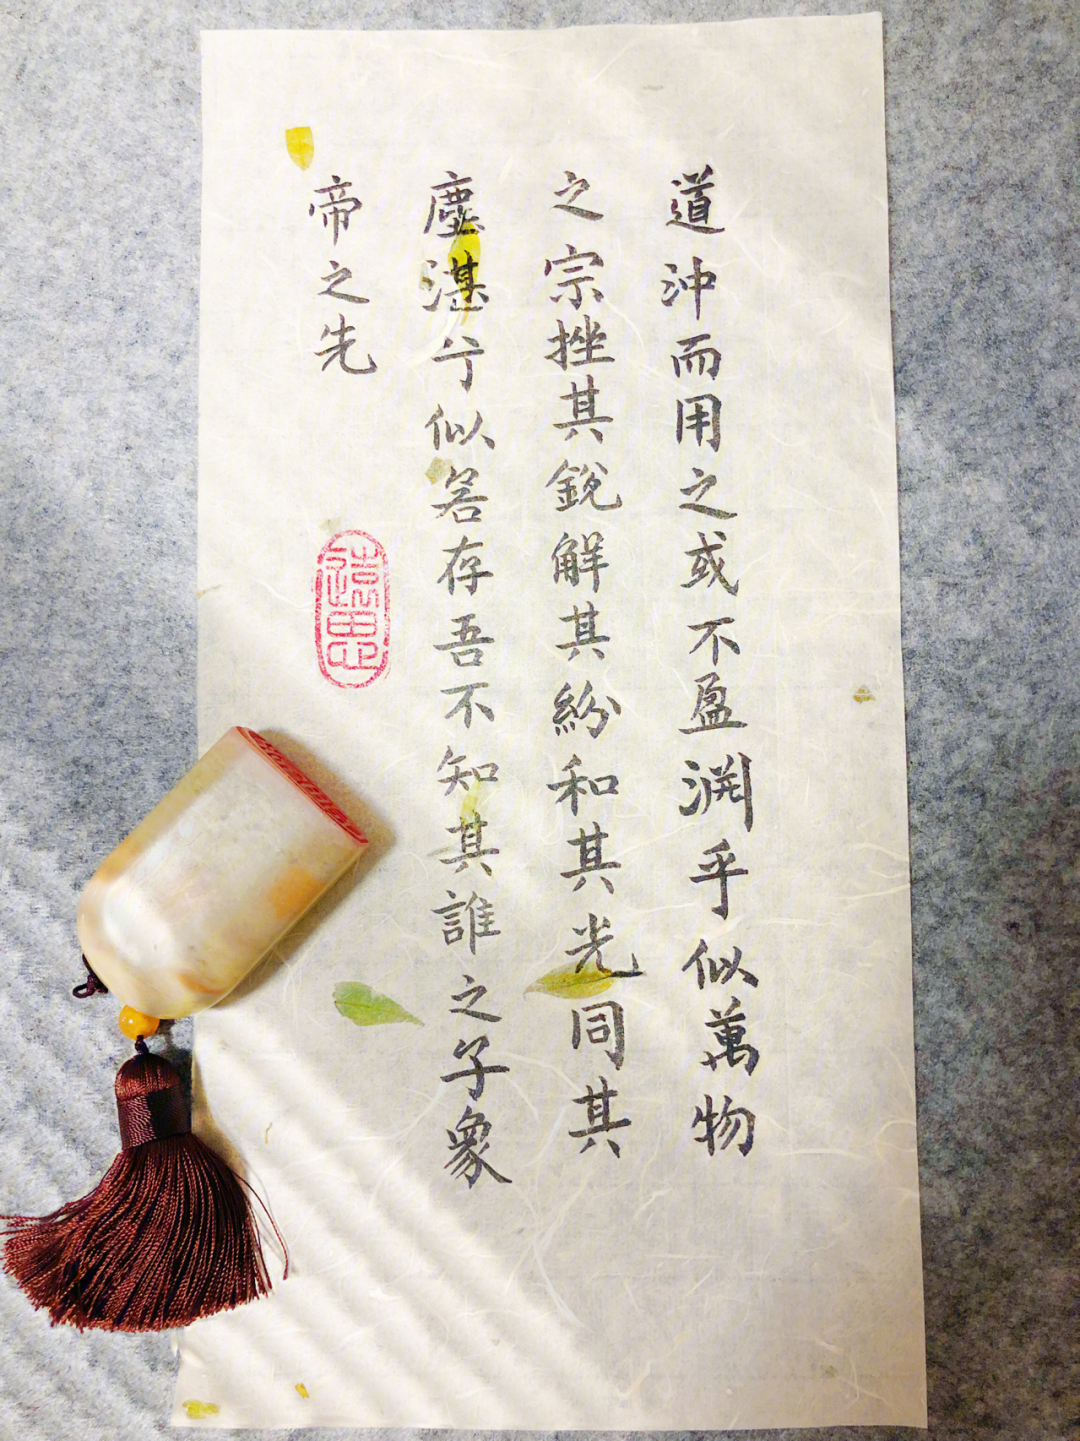 道沖而用之或不盈淵乎似萬物
之宗挫其銳解其紛和其光同其
塵湛兮似若存吾不知其誰之子象
帝之先
遠思